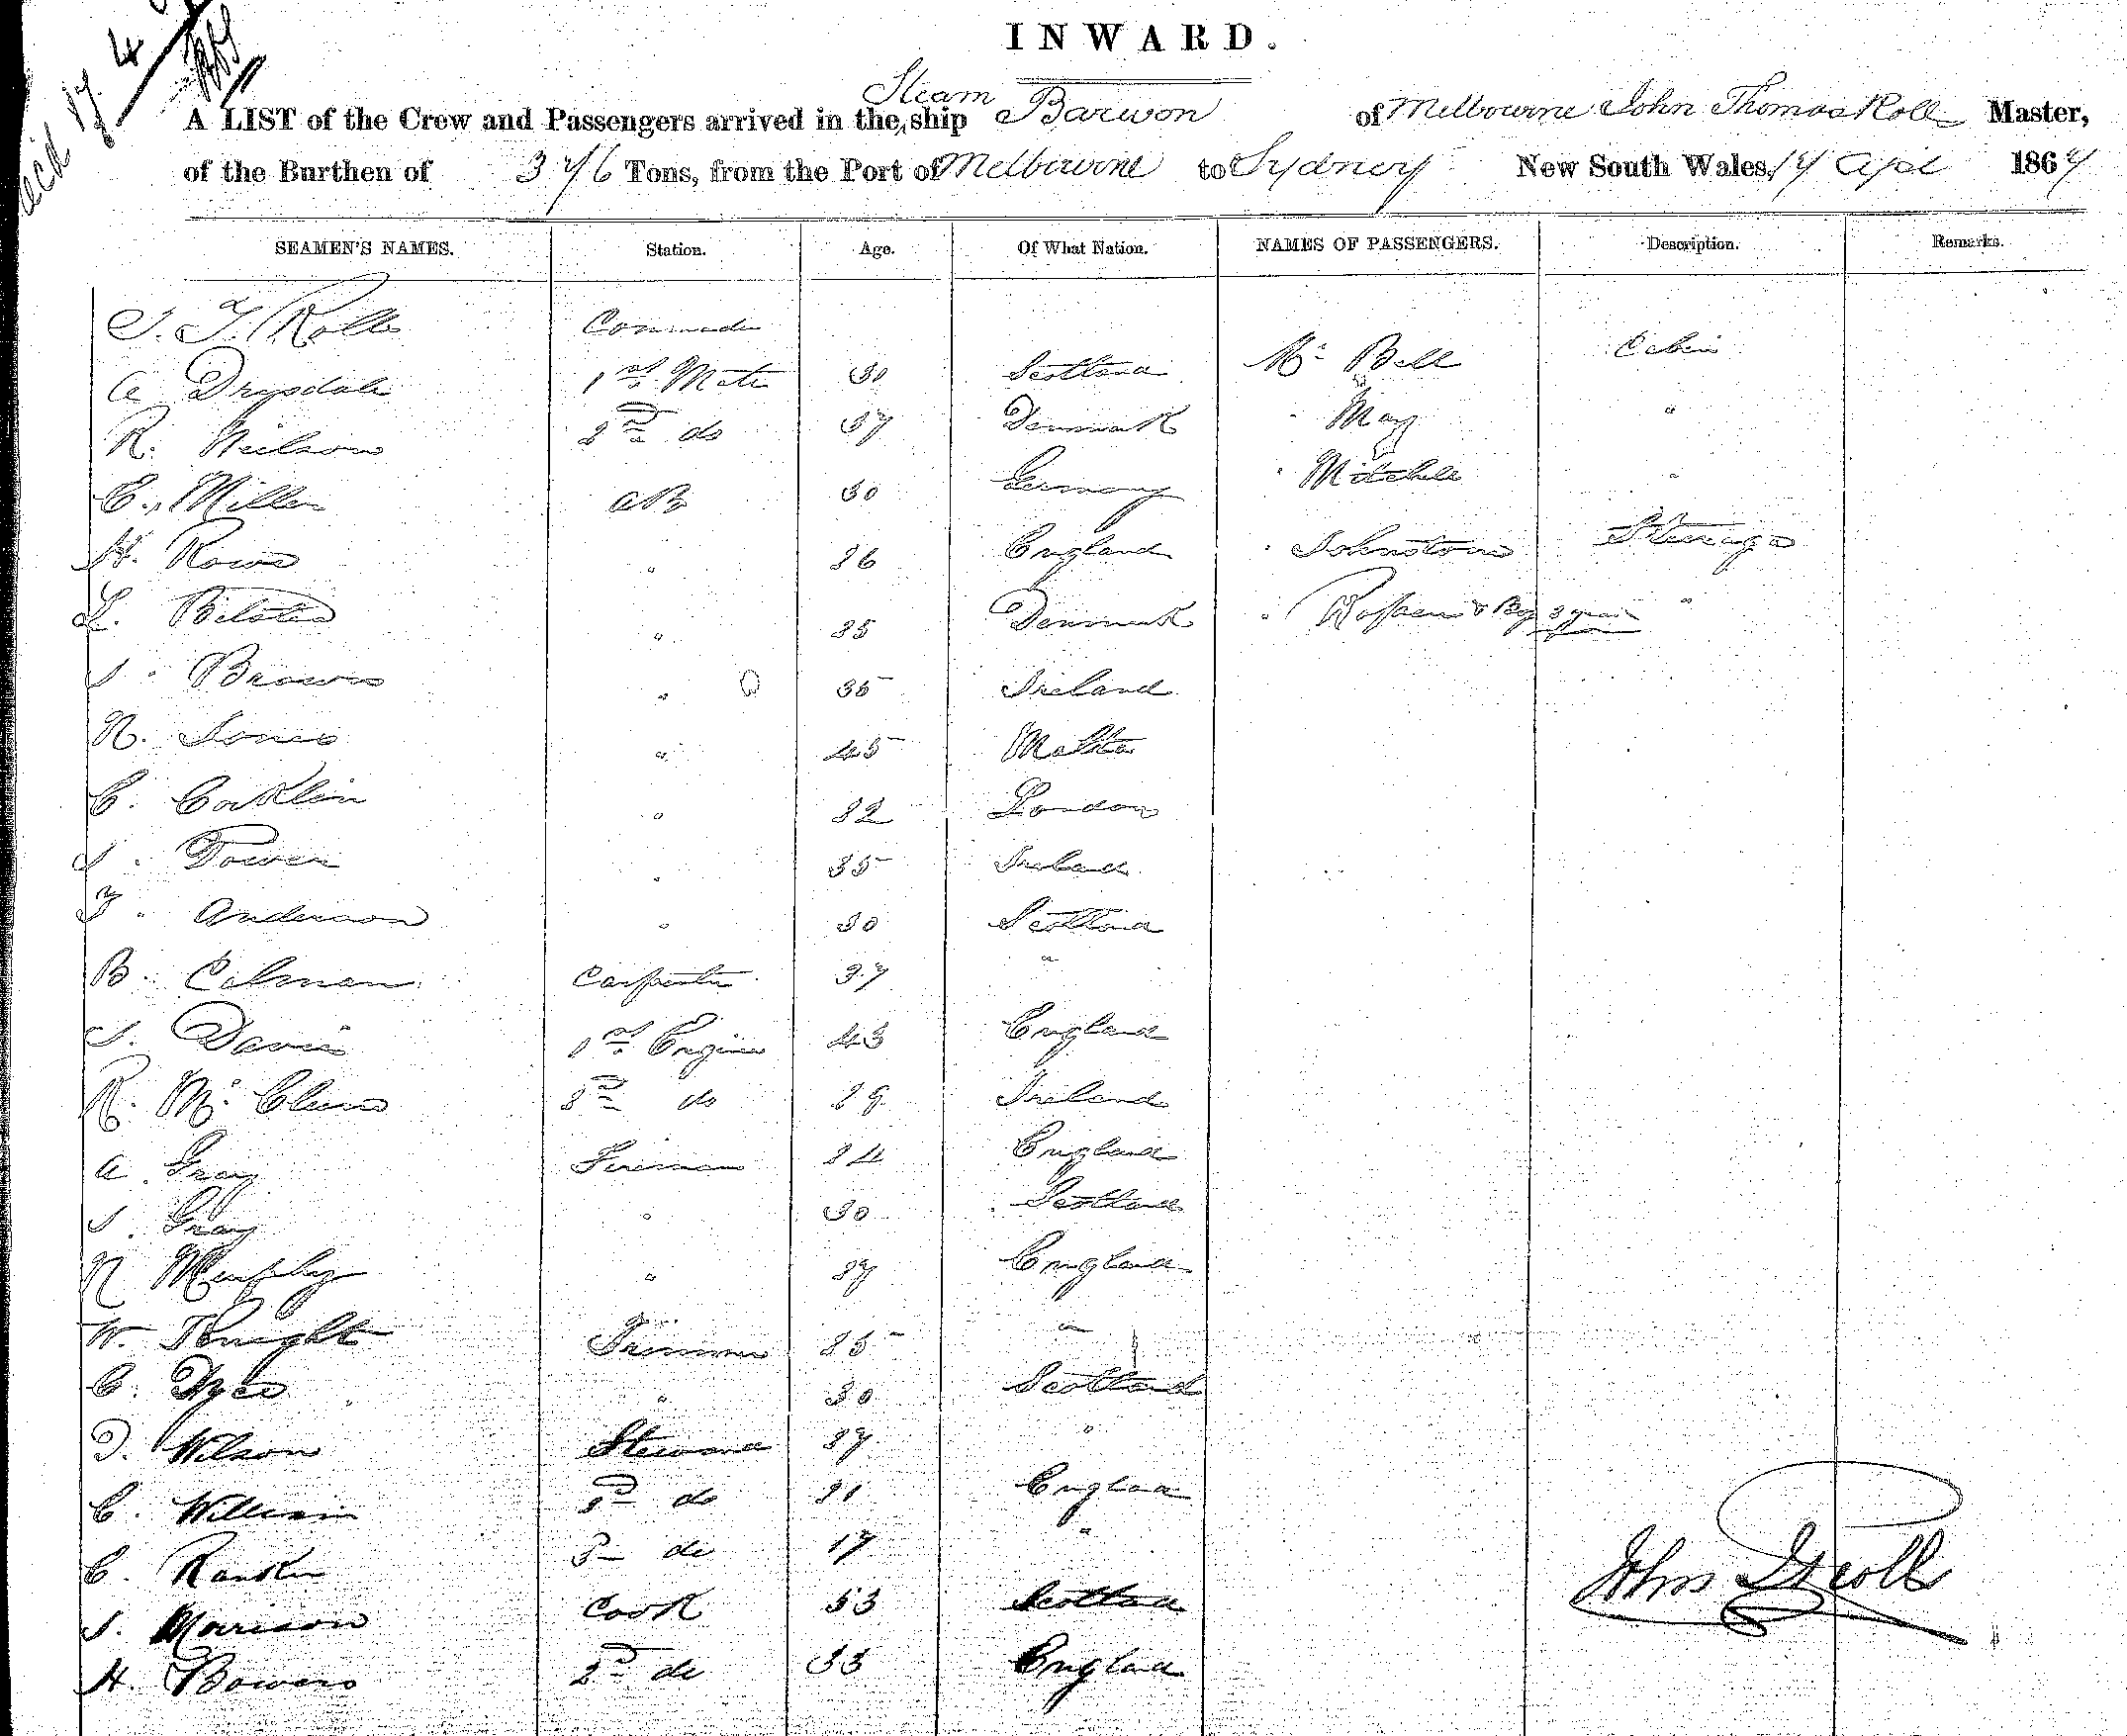 INWARD.
A LIST of the Crew and Passengers arrived in the Steam ship Barwon of Melbourne John Thomas Roll Master,
of the Burthen of 376 Tons, from the Port of Melbourne to Sydney New South Wales, 17 Apl 1867
SEAMEN'S NAMES. Station. Age. Of What Nation. NAMES OF PASSENGERS. Description. Remarks.
J. T. Rolls
A Drysdale 1st Mate 30 Scotland Mr Bell Cabin
R. Neilson 2nd do 37 Denmark " May "
C. Miller AB 30 Germany " Mitchell "
H. Rowe " 26 England " Johnstone Steerage
L. " 25 Denmark " & Boy 3 years "
J. Brown " 35 Ireland
N. Jones " 45 Malta
C. Conklin " 22 London
J. Power " 35 Ireland
F. Anderson " 30 Scotland
B. Colman Carpenter 37 "
J. Davis 1st Engineer 43 England
R. Mc 2nd do 29 Ireland
A. Gray Fireman 24 England
J. Gray " 30 Scotland
N Murphy " 27 England
W. Knight Trimmer 25 "
C. Dyce " 30 Scotland
D. Wilson Steward 27 "
C. William 2nd do 21 England
C. Rankin 3rd do 17 "
J. Morrison Cook 53 Scotland
H. Bowers 2nd do 33 England
John T Roll